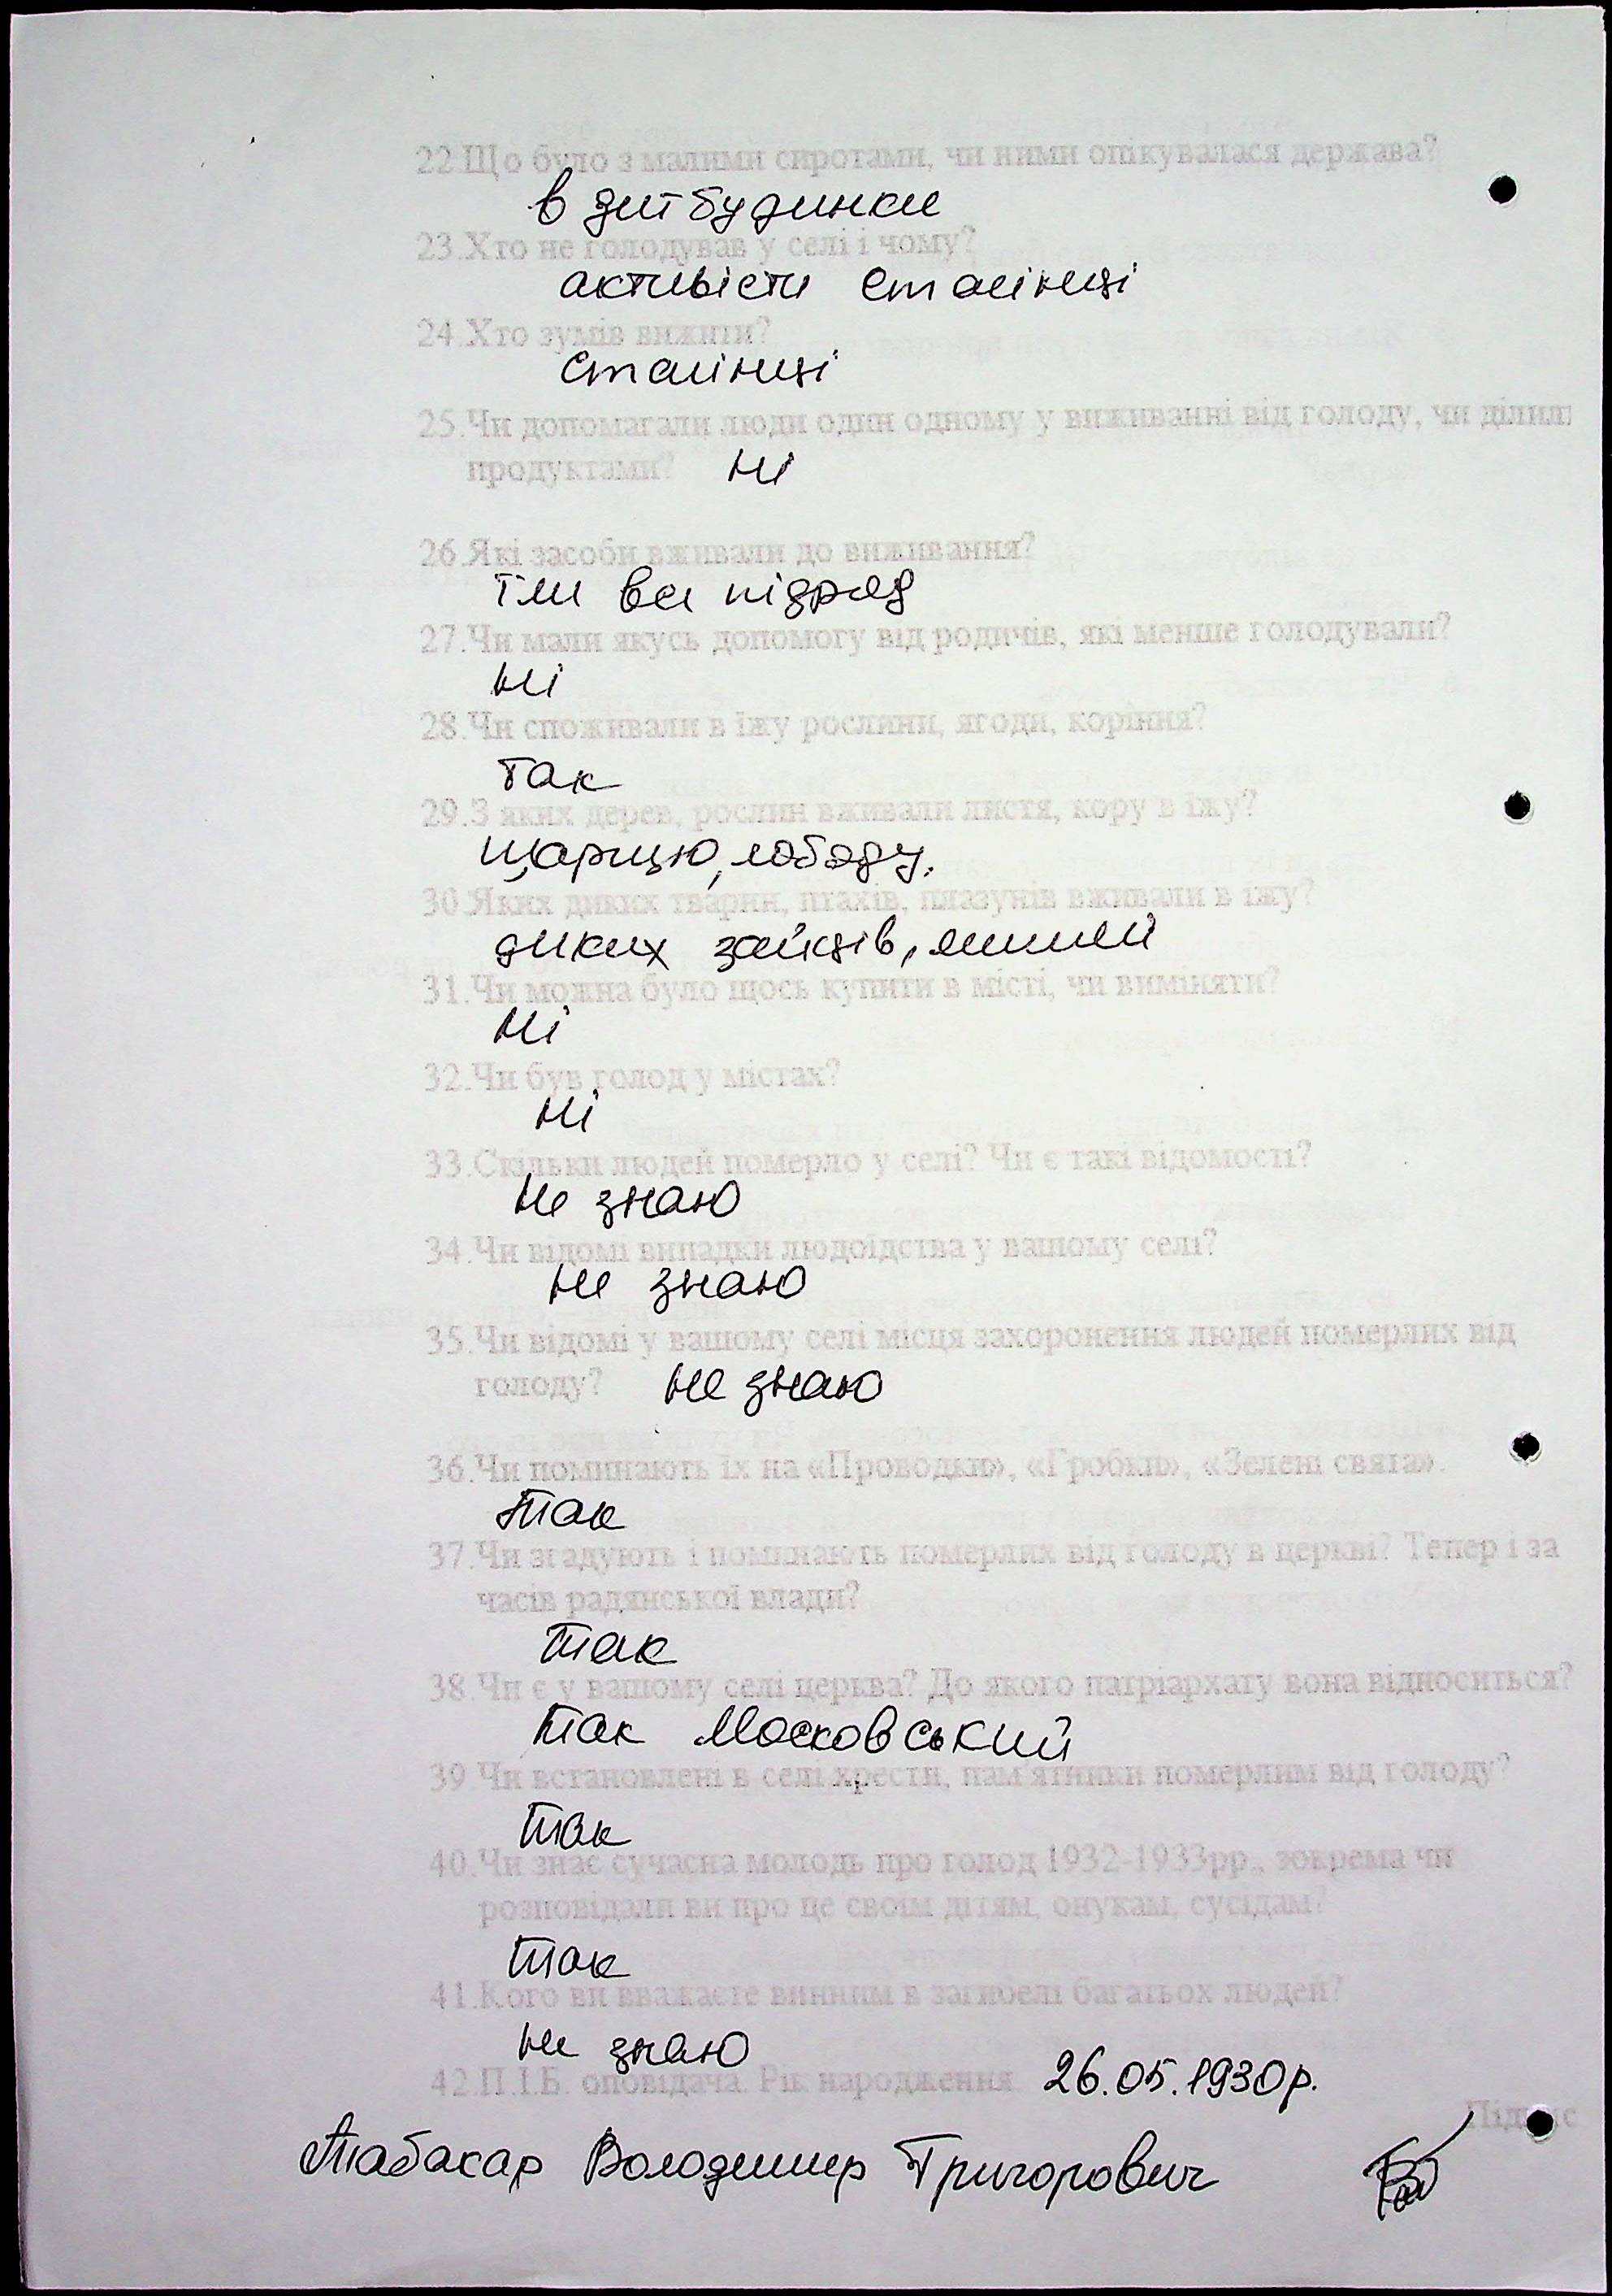 22.Що було з малими сиротами, чи ними опікувалася держава?
в дитбудинки
23.Хто не голодував у селі і чому?
активісти сталінці
24.Хто зумів вижити?
сталінці
25.Чи допомагали люди один одному у виживанні від голоду, чи ділили
продуктами? ні
26.Які засоби вживали до виживання?
їли все підряд
27.Чи мали якусь допомогу від родичів, які менше голодували?
ні
28.Чи споживали в їжу рослини, ягоди, коріння?
так
29.З яких дерев, рослин вживали листя, кору в їжу?
щарицю, лободу.
30.Яких диких тварин, птахів, плазунів вживали в їжу?
диких зайців, мишей
31.Чи можна було щось купити в місті, чи виміняти?
ні
32.Чи був голод у містах?
ні
33.Скільки людей померло у селі? Чи є такі відомості?
не знаю
34.Чи відомі випадки людоїдства у вашому селі?
не знаю
35.Чи відомі у вашому селі місця захоронення людей померлих від
голоду? не знаю
36.Чи поминають їх на «Проводки», «Гробки», «Зелені свята».
так
37.Чи згадують і поминають померлих від голоду в церкві? Тепер і за
часів радянської влади?
так
38.Чи є у вашому селі церква? До якого патріархату вона відноситься?
так Московський
39.Чи встановлені в селі хрести, пам'ятники померлим від голоду?
так
40.Чи знає сучасна молодь про голод 1932-1933рр., зокрема чи
розповідали ви про це своїм дітям, онукам, сусідам?
так
41.Кого ви вважаєте винним в загибелі багатьох людей?
не знаю
42.П.І.Б. оповідача. Рік народження 26.05.1930р.
Підпис
Табакар Володимир Григорович